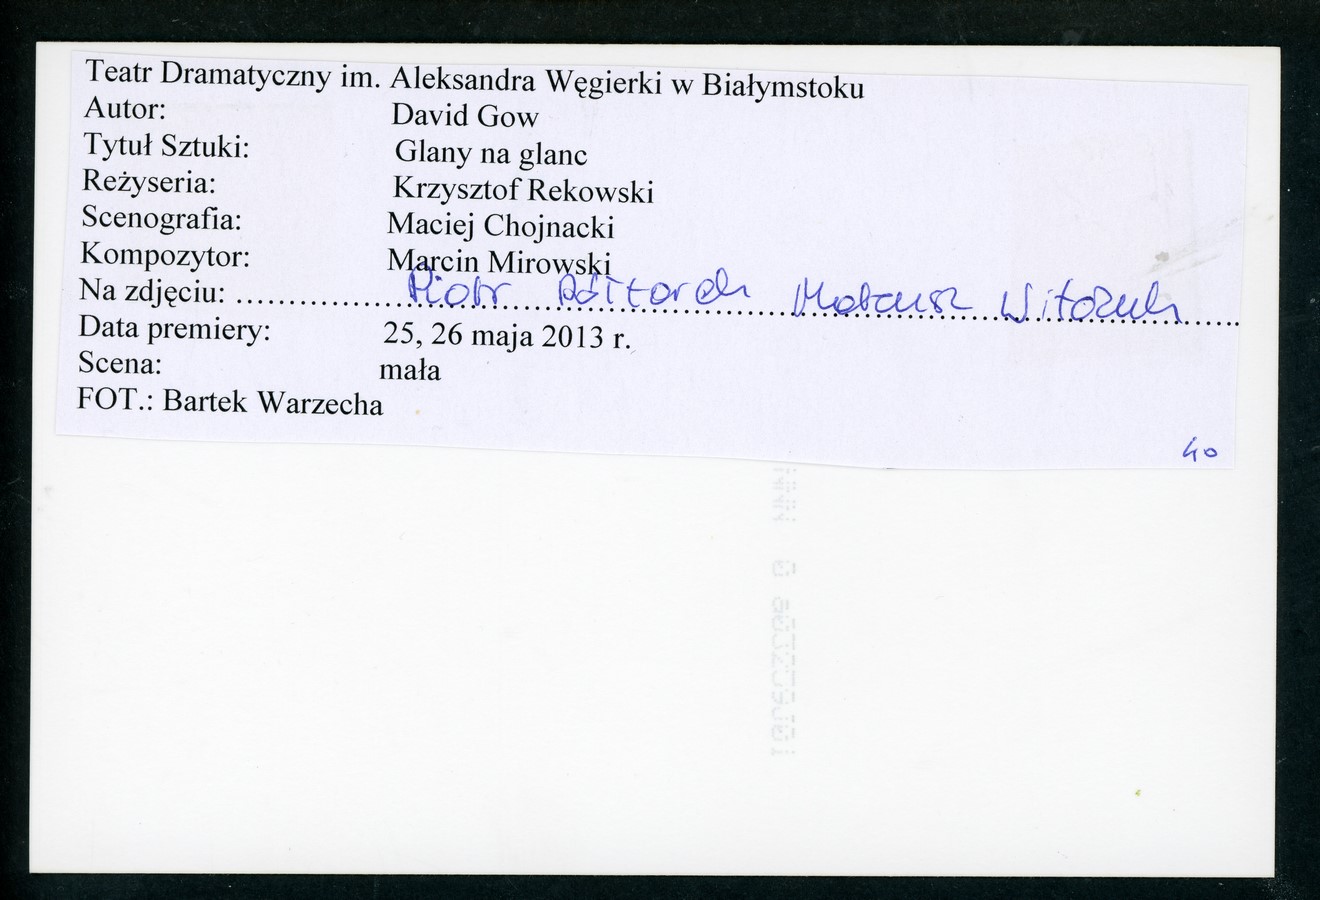 Teatr Dramatyczny im. Aleksandra Węgierki w Białymstoku
Autor: David Gow
Tytuł Sztuki: Glany na glanc
Reżyseria: Krzysztof Rekowski
Scenografia: Maciej Chojnacki
Kompozytor: Marcin Mirowski
Na zdjęciu: Piotr Półtorak Mateusz Witczuk
Data premiery: 25, 26 maja 2013 r.
Scena: mała
FOT.: Bartek Warzecha
40